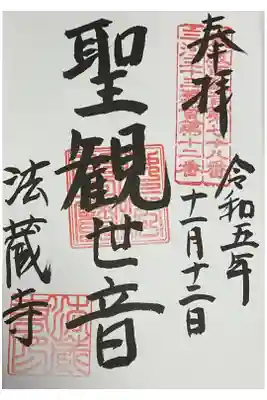 奉拝
令和五年
十一月十二日
聖観世音
法蔵寺